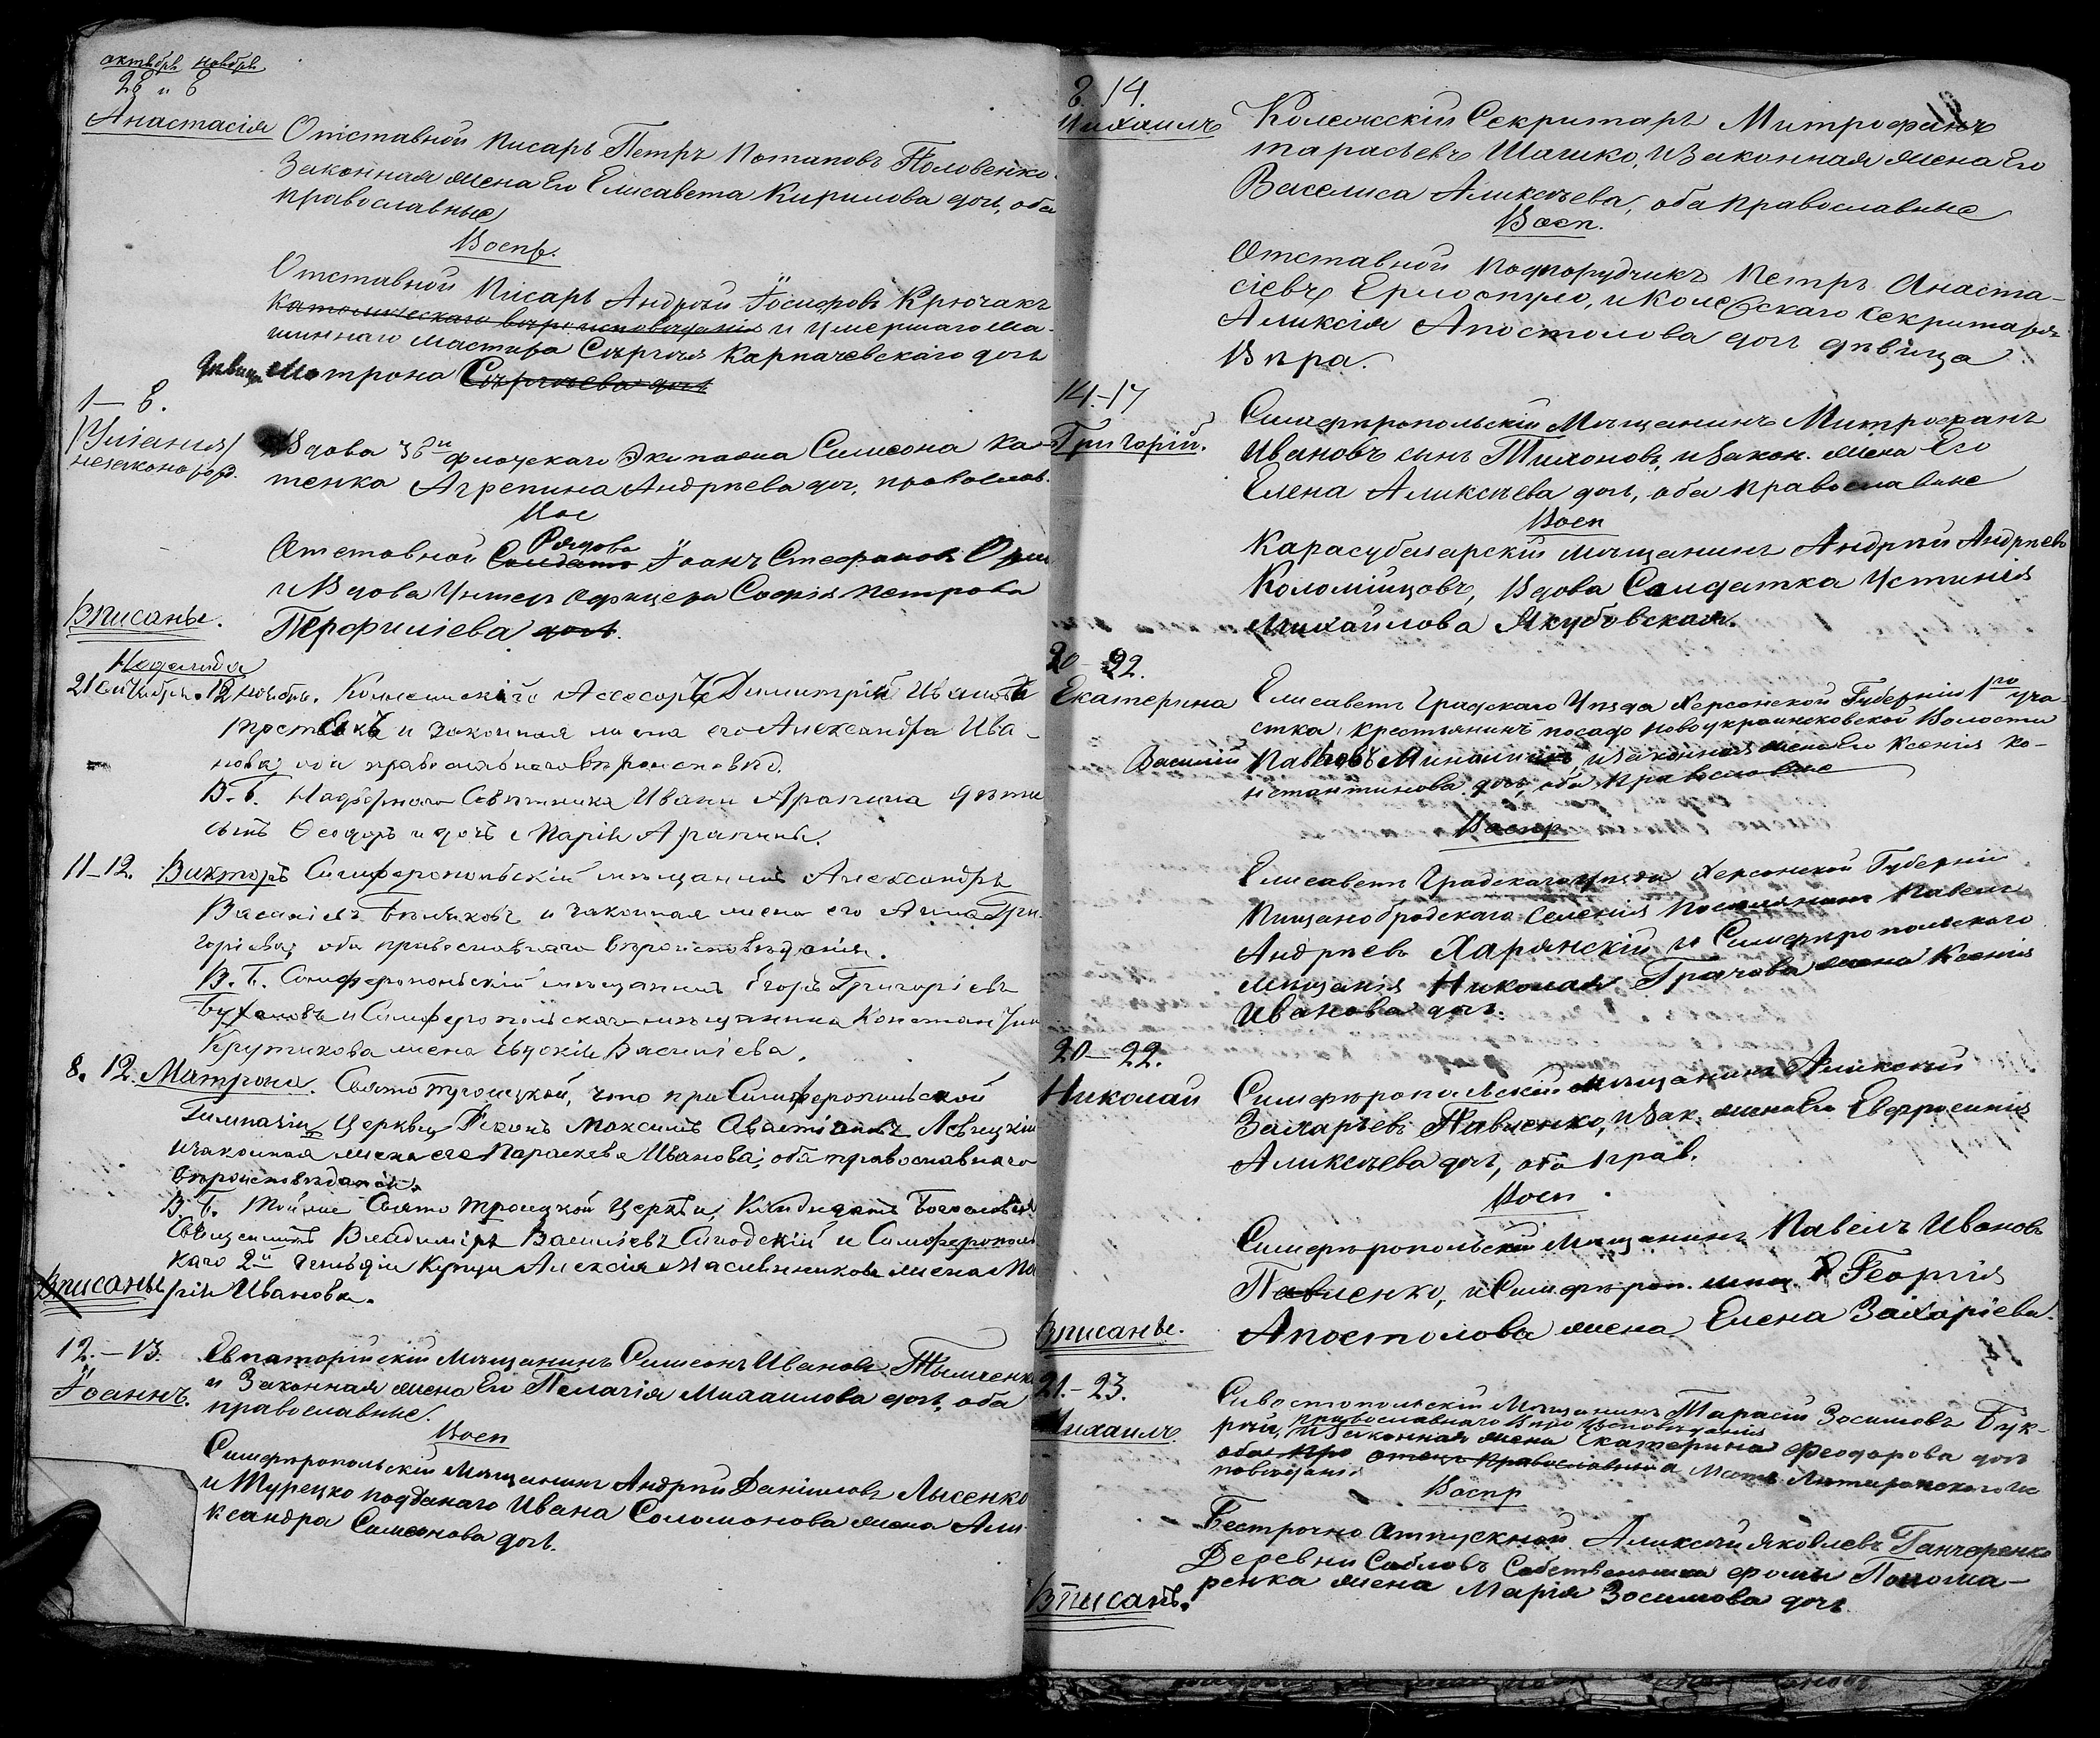 октябрь ноябрь
28 и 8
Анастасія
Отставной Писарь Петръ Потаповъ Половенко
Законная жена Его Елисавета Кирилова дочь, оба
православные
Воспр.
Отставной Писарь Андрей Іосифовъ Крючакъ
католическаго вѣроисповеданія и умершаго Ма-
шиннаго мастера Сергѣя Карпачевскаго дочь
дѣвица Матрона Сергѣева дочь
1 – 8.
/Уліанія/
незаконорож.
Вдова 36го флотскаго Экипажа Симеона Ка-
тенка Агрепина Андрѣева доч. православ.
Вос
Отставной Солдатъ Рядовой Іоанъ Стефановъ
и Вдова Унтер офицера Софія Петрова
Перфиліева дочь.
Вписаны.
Надежда
21 Октября. 12 ноябрь. Колежскій Асесоръ Димитрій Ивановъ
и законная жена его Александра Ива-
нова, оба православнаго вѣроисповѣд.
В. б. Надворнаго Совѣтника Ивана Арапина дѣти
сынъ Ѳеодоръ и дочь Марія Арапины.
11–12. Викторъ Симферопольскій мѣщанинъ Александръ
Васильевъ Бѣляковъ и законная жена его Анна Гри-
горіева, оба православнаго вѣроисповѣданія.
В. б. Симферопольскій мѣщанинъ Егоръ Григоріевъ
и Симферопольскаго мѣщанина Константина
Крутикова жена Евдокія Васильева.
8. 12. Матрона. Свято Троицкой, что при Симферопольской
Гимназіи Церкви Дьяконъ Максимъ Левицкій
и законная жена его Параскева Иванова, оба православнаго
вѣроисповѣданія.
В. б. Той же Свято Троицкой Церкви, Кандидатъ Богословія
Священникъ Владиміръ Васильевъ и Симферополь
каго 2й Гильдіи Купца Алексія Масленникова жена Ма
рія Иванова.
Вписаны
12.–13.
Іоаннъ.
Евпаторійскій Мѣщанинъ Симеонъ Ивановъ Тымченко
и Законная жена Его Пелагія Михаилова дочь, оба
православные.
Восп
Симферопольскій Мѣщанинъ Андрей Даніиловъ Лысенко
и Турецко подданаго Ивана Соломонова жена Але-
ксандра Симеонова дочь.
8. 14.
Михаилъ
Колежскій Секритарь Митрофанъ
тарасьевъ Шашко, и Законная жена Его
Васелиса Аликсѣева, оба православные
Восп.
Отставной подпорудчикъ Петръ Анаста-
сіевъ Ермопуло, и Колежскаго Секритаря
Аликсія Апостолова доч дѣвица
Вѣра.
14.–17
Григорій.
Симферопольскій Мѣщанинъ Митрофанъ
Ивановъ синъ Тихоновъ, и Закон. жена Его
Елена Аликсѣева дочь, оба православные
Восп
Карасубазарскій мѣщанинъ Андрей Андрѣевъ
Коломійцовъ, Вдова Солдатка Устинія
Михайлова Якубовская.
20–22.
Екатерина
Елисавет Градскаго Уѣзда Херсонской Губерніи 1го уча-
стка, крестьянинъ посада Новоукраинсковской Волости
Василій Павловъ Мининъ, и законная жена Его Ксенія Ко-
нстантинова дочь, оба православные
Воспр
Елисавет Градскаго уѣзда Херсонской Губерніи
Пищанобродскаго Селенія Поселянинъ Павелъ
Андрѣевъ Харянскій и Симферопольскаго
мещанія Николая Грачова жена Ксенія
Иванова дочь.
20–22.
Николай
Симферопольскій мѣщанинъ Аликсѣй
Захарьевъ Павленко, и Зак. жена Его Евфросинія
Аликсѣева дочь, оба прав.
Восп.
Симферопольскій Мѣщанинъ Павелъ Ивановъ
Павленко, и Симфероп. мѣщ. Георгія
Апостолова жена Елена Захаріева.
Вписаны.
21.–23.
Михаилъ
Сивостопольскій Мѣщанинъ Тарасій Зосимовъ Бук-
рѣй, православнаго Вѣро Исповѣданія
и законная жена Екатерина Феодорова дочь
оба Пра отецъ православный а Мать Лютеранскаго Ис
поведанія
Воспр
Безсрочно отпускной Аликсѣй Яковлевъ Ганчаренко
Деревни Сабловъ Собственника Фомы Понома-
ренка жена Марія Зосимова дочь
Вписанъ.